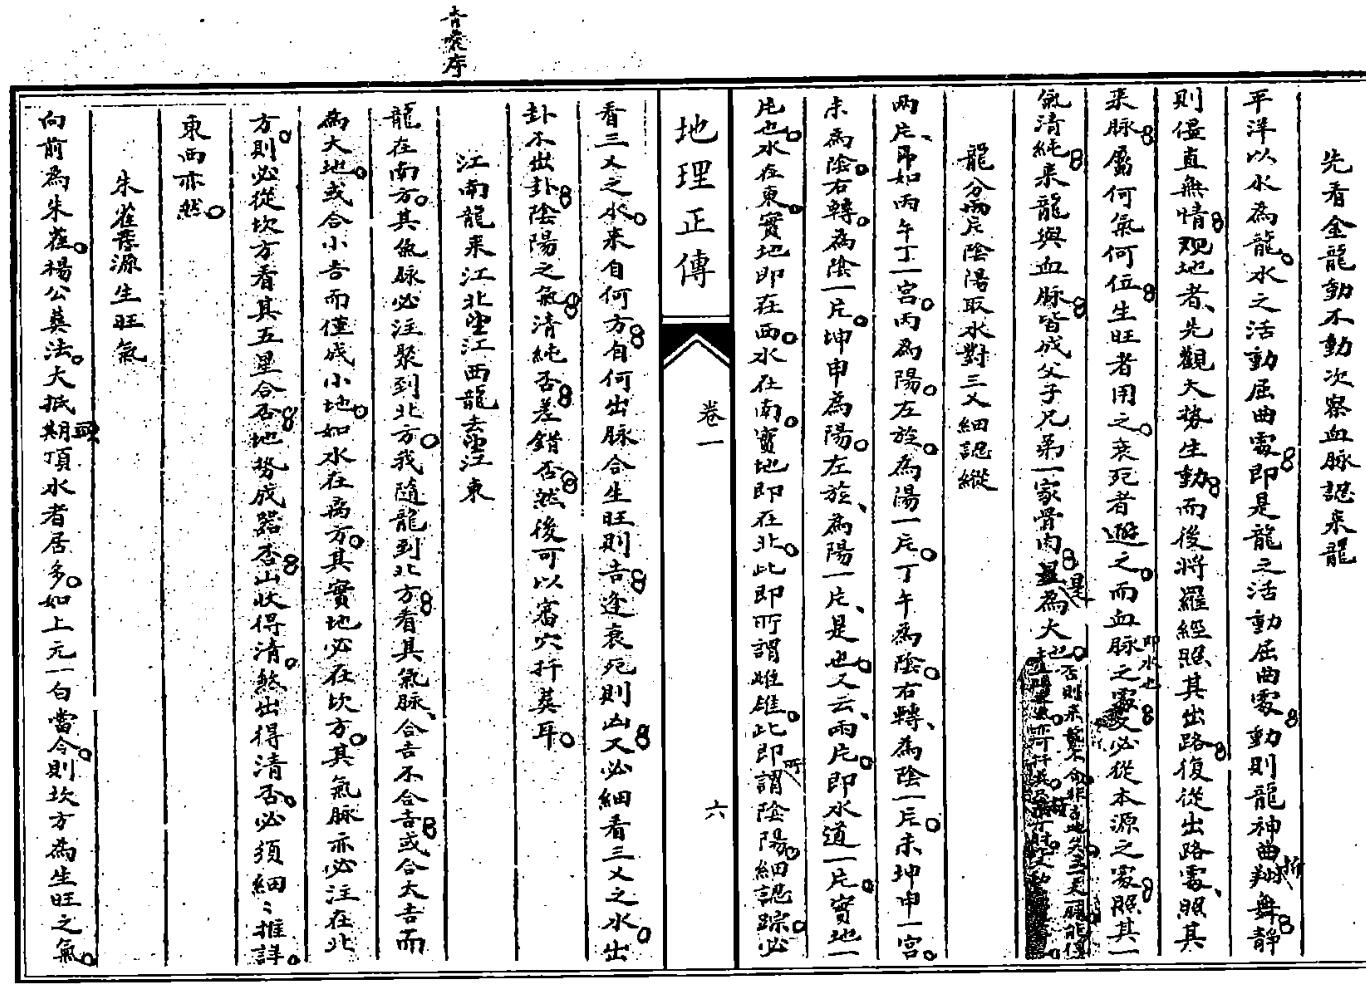 青囊序
先看金龍動不動次察血脉認来龍
平洋以水為龍水之活動屈曲處即是龍之活動屈曲處動則龍神曲翔舞靜
則僵直無情观地者先觀大势生動而後將羅經照其出路復從出路處照其
来脉屬何氣何位生旺者用之衰死者避之而血脉之處必從本源之處照其一
即水也
氣清純来龍與血脉皆成父子兄弟一家骨肉為大
是
龍分兩片陰陽取水對三义細認縱
兩片即如丙午丁一宮丙為陽左旋為陽一片丁午為陰右轉為陰一片未坤申一宮
未為陰右轉為陰一片坤申為陽左旋為陽一片是也又云兩片即水道一片實地一
片也水在東實地即在西水在南實地即在北此即所謂雌雄此即謂陰陽細認踪必
所
地理正傳
卷一
六
看三义之水来自何方自何出脉合生旺則吉逢衰死則凶又必細看三义之水出
卦不出卦陰陽之氣清純否差錯否然後可以審穴扦葬耳
江南龍来江北望江西龍去望江東
龍在南方其氣脉必注聚到北方我隨龍到北方看其氣脉合吉不合吉或合大吉而
為大地或合小吉而僅成小地如水在离方其實地必在坎方其氣脉亦必注在北
方則必從坎方看其五星合否地势成器否山狀得清煞出得清否必須細〻推詳
東西亦然
朱雀發源生旺氣
向前為朱雀楊公葬法大抵期頂水者居多如上元一白當令則坎方為生旺之氣